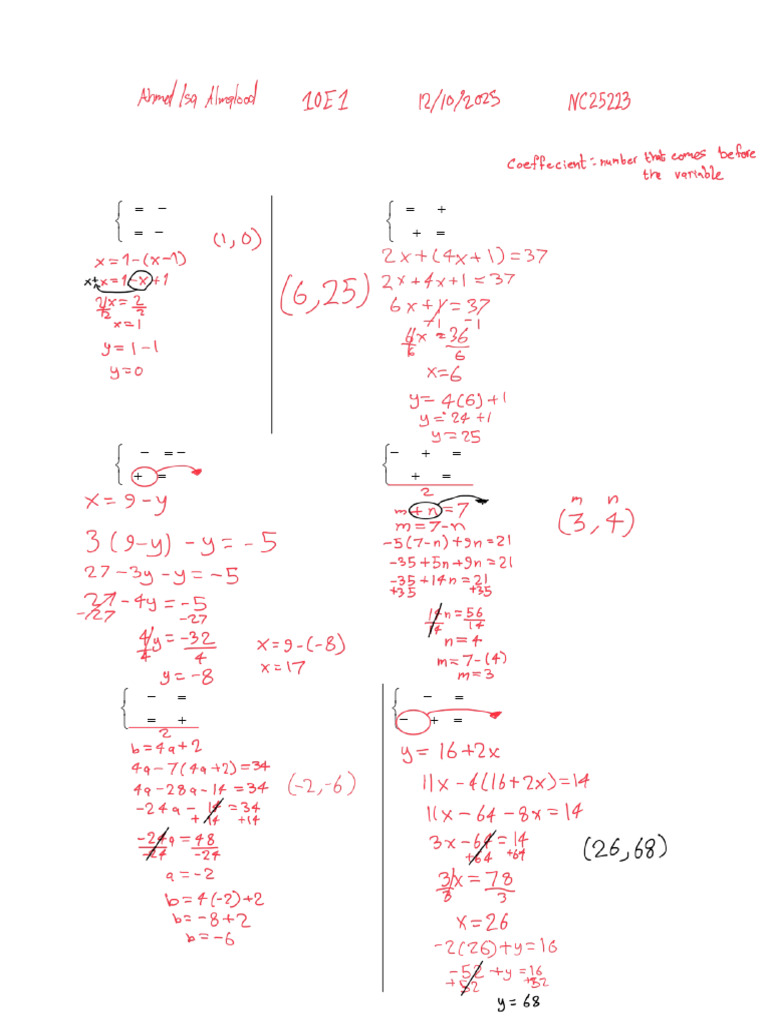 Ahmed Isa Almglood 10E1 12/10/2025 NC25223
Coeffecient = number that comes before
the variable
= −
= −
x = 1 − (x − 1)
x + x = 1 − x + 1
2x = 2
2 2
x = 1
y = 1 − 1
y = 0
(1, 0)
= +
+ =
2x + (4x + 1) = 37
2x + 4x + 1 = 37
6x + 1 = 37
−1 −1
6x = 36
6 6
x = 6
y = 4(6) + 1
y = 24 + 1
y = 25
(6, 25)
− = −
+ =
x = 9 − y
3(9 − y) − y = −5
27 − 3y − y = −5
27 − 4y = −5
−27 −27
4y = −32
4 4
y = −8
x = 9 − (−8)
x = 17
− + =
+ =
2
m + n = 7
m = 7 − n
−5(7 − n) + 9n = 21
−35 + 5n + 9n = 21
−35 + 14n = 21
+35 +35
14n = 56
14 14
n = 4
m = 7 − (4)
m = 3
m n
(3, 4)
− =
= +
2
b = 4a + 2
4a − 7(4a + 2) = 34
4a − 28a − 14 = 34
−24a − 14 = 34
+14 +14
−24a = 48
−24 −24
a = −2
b = 4(−2) + 2
b = −8 + 2
b = −6
(−2, −6)
− =
− + =
y = 16 + 2x
11x − 4(16 + 2x) = 14
11x − 64 − 8x = 14
3x − 64 = 14
+64 +64
3x = 78
3 3
x = 26
−2(26) + y = 16
−52 + y = 16
+52 +52
y = 68
(26, 68)